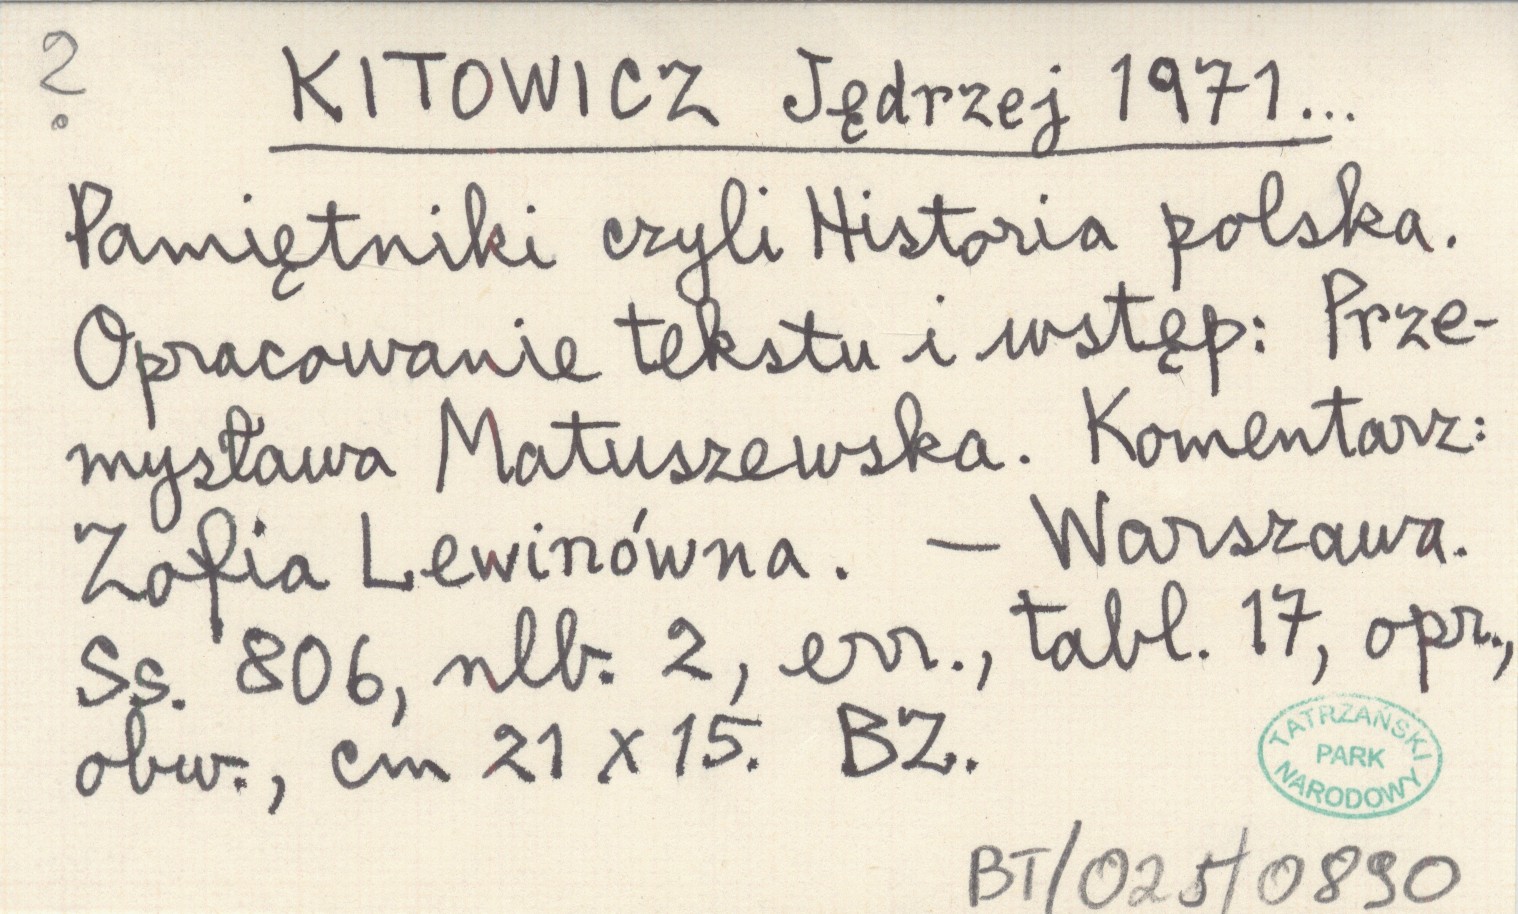 ?
KITOWICZ Jędrzej 1971...
Pamiętniki czyli Historia polska.
Opracowanie tekstu i wstęp: Prze-
mysława Matuszewska. Komentarz:
Zofia Lewinówna. — Warszawa.
Ss. 806, nlb. 2, err., tabl. 17, opr.,
obw., cm 21 x 15. BZ.
TATRZAŃSKI
PARK
NARODOWY
BT/025/0890